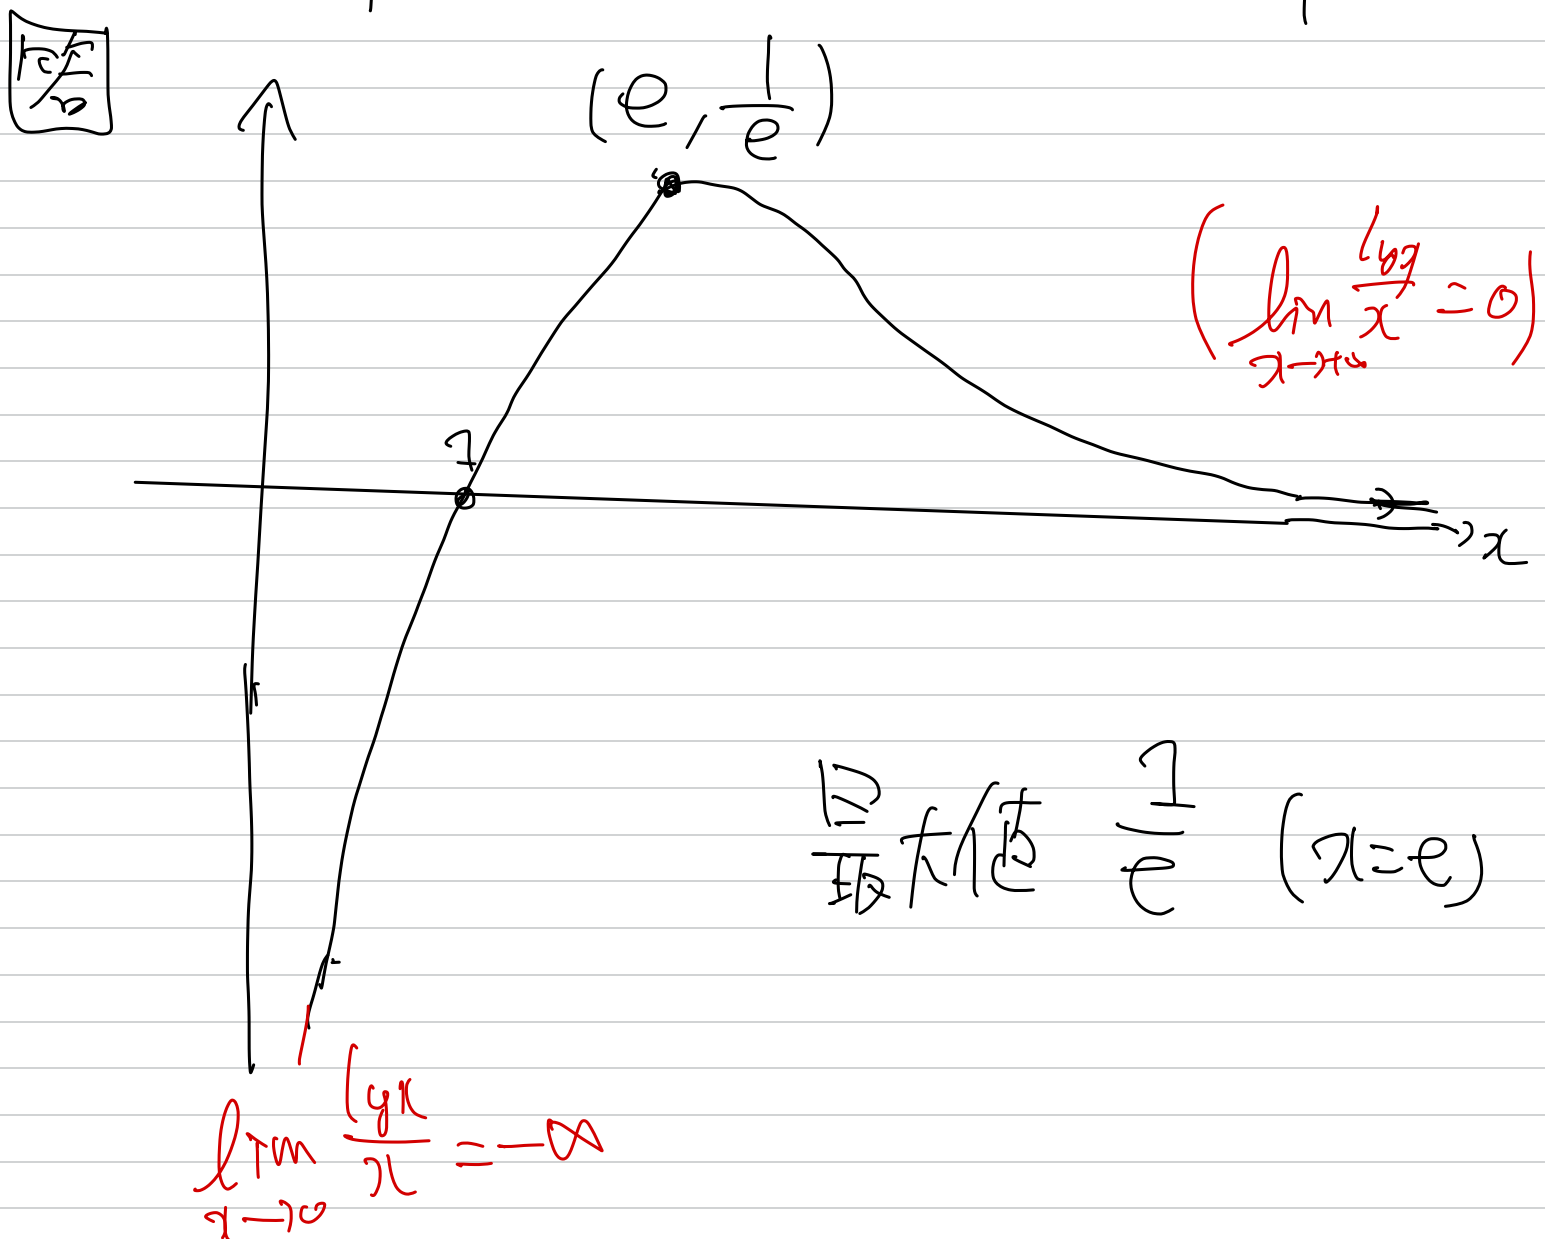 (e, 1/e)
(lim_{x→+∞} log x / x = 0)
1
x
最大値 1/e (x=e)
lim_{x→0} log x / x = -∞